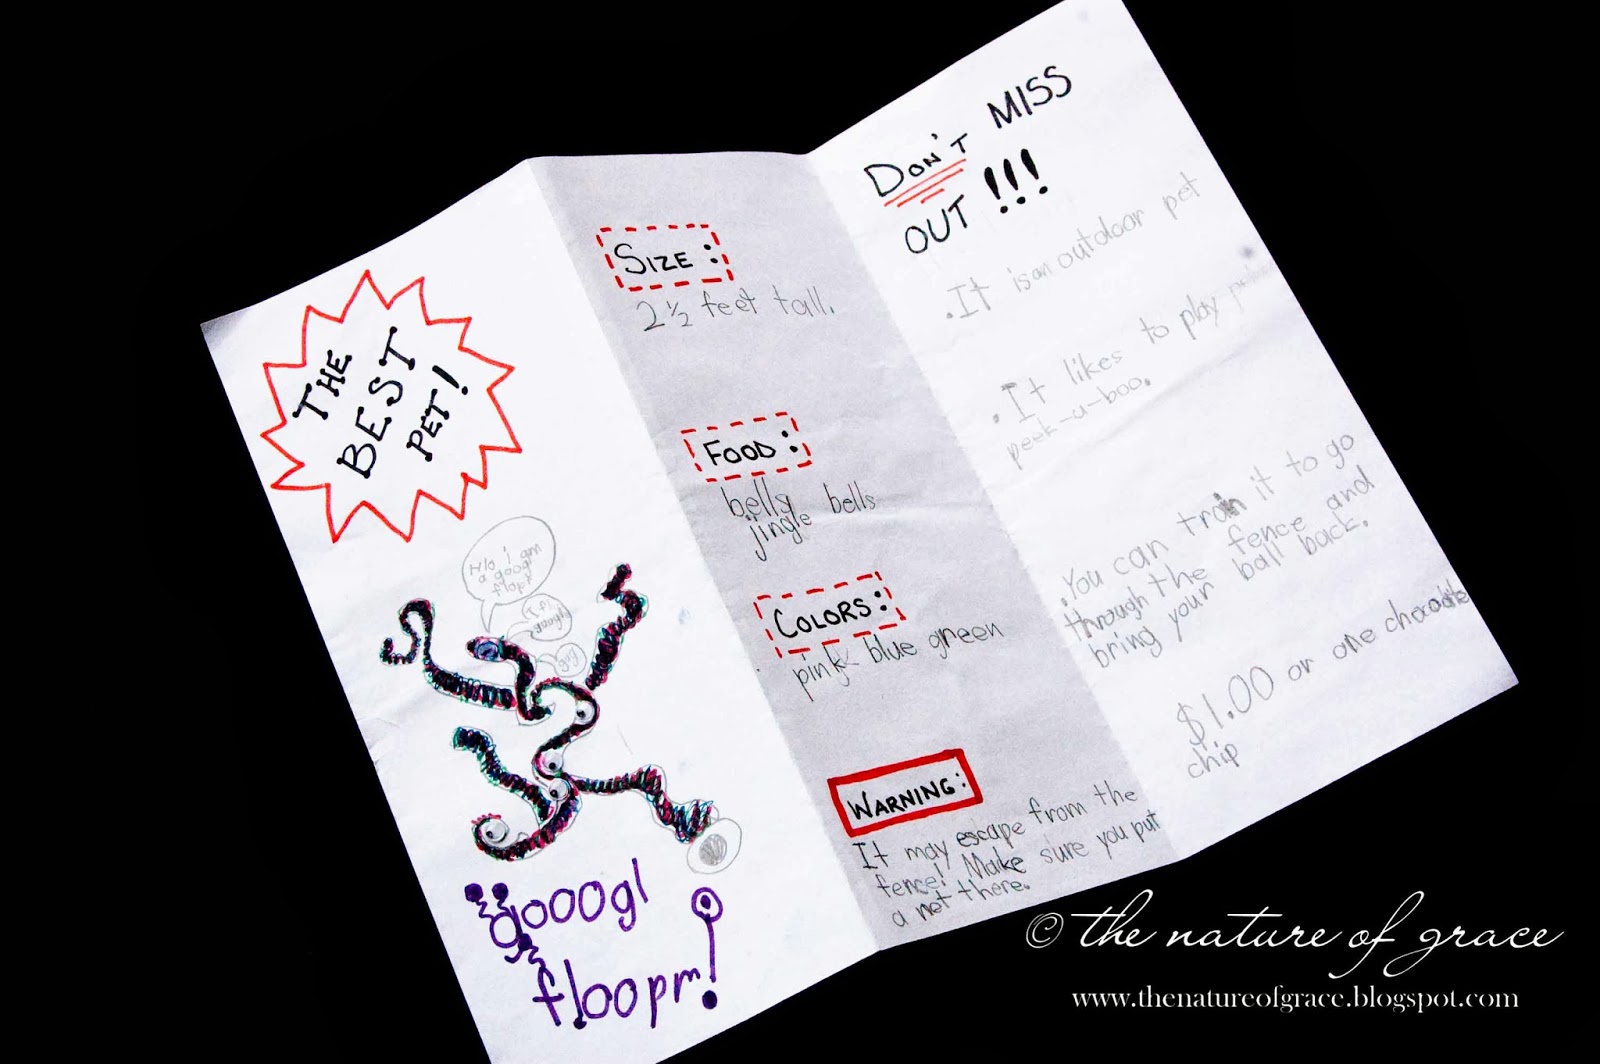 THE
BEST
PET!
Hlo i am
a googl
gooogl
floopm!
SIZE:
2 ½ feet tall.
FOOD:
belly bells
jingle
COLORS:
pink blue green
WARNING:
It may escape from the
fence! Make sure you put
a net there.
DON'T MISS
OUT!!!
.It is an outdoor pet
.It likes to play
peek-a-boo.
.You can train it to go
through the fence and
bring your ball back.
$1.00 or one chocolate
chip
© the nature of grace
www.thenatureofgrace.blogspot.com